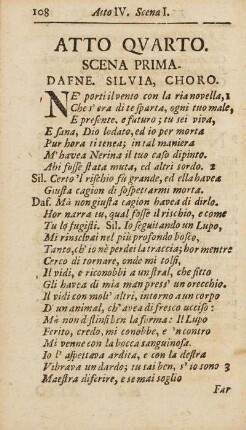 108 Atto IV. Scena I.
ATTO QVARTO.
SCENA PRIMA.
DAFNE. SILVIA, CHORO.
NE' porti il vento con la ria novella, 1
Che s'era di te sparta, ogni tuo male,
E presente. e futuro; tu sei viva,
E sana, Dio lodato, ed io per morta
Pur hora ti tenea; in tal maniera
M'havea Nerina il tuo caso dipinto.
Ahi fosse stata muta, ed altri sordo. 2
Sil. Certo'l rischio fù grande, ed ella havea
Giusta cagion di sospettarmi morta.
Daf. Mà non giusta cagion havea di dirlo.
Hor narra tu, qual fosse il rischio, e come
Tu lo fugisti. Sil. Io seguitando un Lupo,
Mi rinselvai nel più profondo bosco,
Tanto, ch'io nè perdei la traccia; hor mentre
Cerco di tornare, onde mi tolsi,
Il vidi, e riconobbi a un stral, che fitto
Gli havea di mia man press'un orecchio.
Il vidi con molt'altri, intorno a un corpo
D'un animal, ch'avea di fresco ucciso:
Mà non distinsi ben la forma: Il Lupo
Ferito, credo, mi conobbe, e 'ncontro
Mi venne con la bocca sanguinosa.
Io l'aspettava ardita, e con la destra
Vibrava un dardo; tu sai ben, s'io sono 3
Maestra di ferire, e se mai soglio
Far